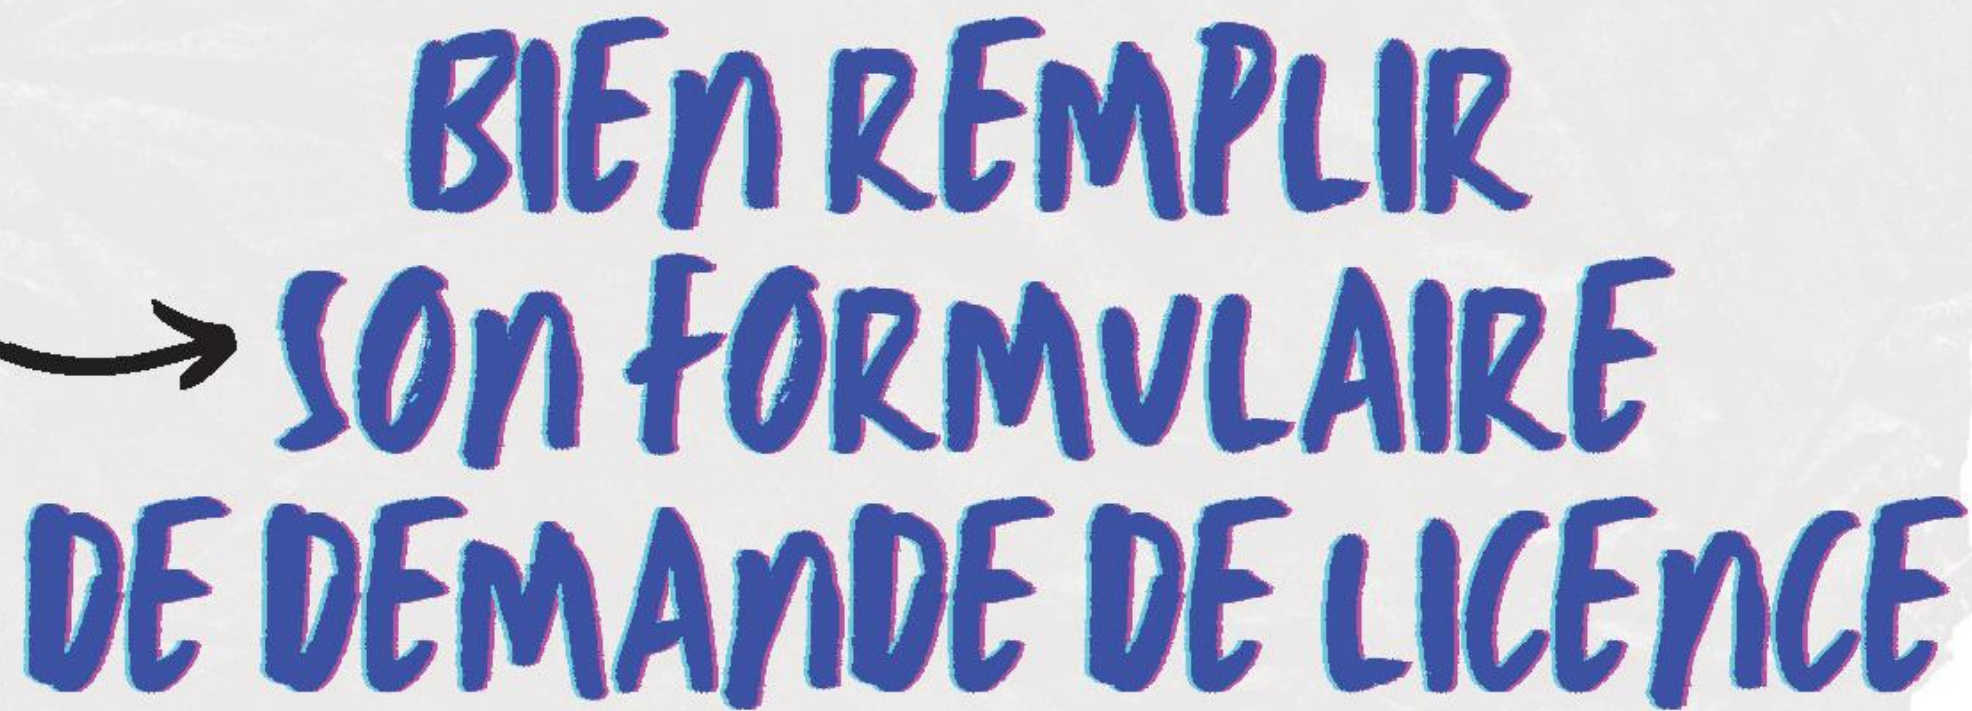 BIEN REMPLIR
SON FORMULAIRE
DE DEMANDE DE LICENCE